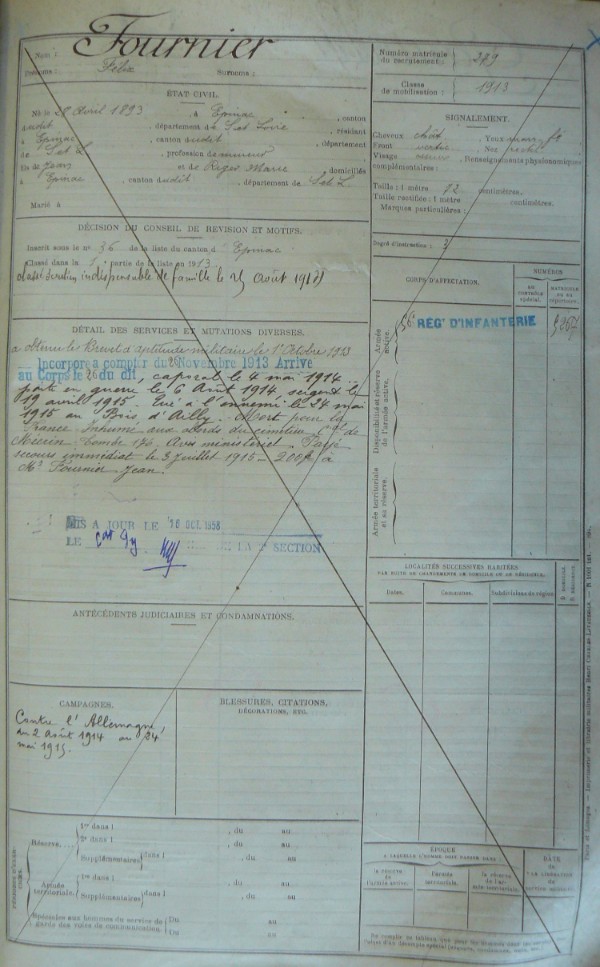 Nom : Fournier
Prénoms : Félix Surnoms :
Numéro matricule du recrutement : 379
Classe de mobilisation : 1913
ÉTAT CIVIL.
Né le 28 Avril 1893, à Epinac, canton
dudit, département de S et Loire, résidant
à Epinac, canton dudit, département
de S et L, profession de
fils de Jean et de Marie, domiciliés
à Epinac, canton dudit, département de S et L
Marié à
SIGNALEMENT.
Cheveux chât Yeux
Front Nez
Visage Renseignements physionomiques
complémentaires :
Taille : 1 mètre 72 centimètres.
Taille rectifiée : 1 mètre centimètres.
Marques particulières :
Degré d'instruction : 3
DÉCISION DU CONSEIL DE RÉVISION ET MOTIFS.
Inscrit sous le n° 36 de la liste du canton d'Epinac
Classé dans la 1e partie de la liste en 1913
classé soutien indispensable de famille le 25 août 191
CORPS D'AFFECTATION.
NUMÉROS
au contrôle spécial.
matricule ou au répertoire.
Armée active.
56e RÉGt D'INFANTERIE
Disponibilité et réserve de l'armée active.
Armée territoriale et sa réserve.
DÉTAIL DES SERVICES ET MUTATIONS DIVERSES.
a obtenu le Brevet d'aptitude militaire le 1er Octobre 1913
Incorporé à compter du 26 Novembre 1913 Arrivé
au Corps le 26 du dit, caporal le 4 mai 1914.
parti en guerre le 6 Août 1914, sergent le
19 avril 1915. Tué à l'ennemi le 24 mai
1915 au Bois d'Ailly. Mort pour la
France. Inhumé aux bords du cimetière Cal de
Tombe 174. Avis ministériel. Payé
secours immédiat le 3 Juillet 1915 - 200f à
Mr Fournier Jean.
MIS A JOUR LE 10 OCT. 1938
LE SECTION
LOCALITÉS SUCCESSIVES HABITÉES
PAR SUITE DE CHANGEMENTS DE DOMICILE OU DE RÉSIDENCE.
Dates. Communes. Subdivisions de région.
ANTÉCÉDENTS JUDICIAIRES ET CONDAMNATIONS.
CAMPAGNES.
Contre l'Allemagne
du 2 Août 1914 au 24
mai 1915.
BLESSURES, CITATIONS,
DÉCORATIONS, ETC.
Réserve.
1re dans l , du au
2e dans l , du au
Supplémentaires dans l , du au
Armée territoriale.
1re dans l , du au
Supplémentaires dans l , du au
Spéciales aux hommes du service de garde des voies de communication.
Du au
Du au
ÉPOQUE
A LAQUELLE L'HOMME DOIT PASSER DANS :
la réserve de l'armée active.
l'armée territoriale.
la réserve de l'armée territoriale.
DATE